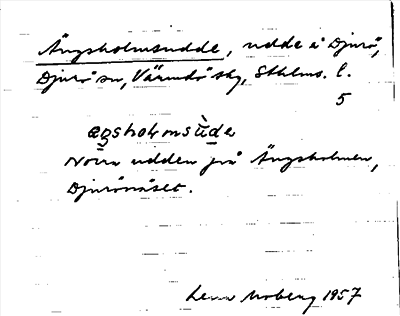 Ängsholmsudde, udde å Djurö,
Djurö sn, Värmdö skg, Sthlms. l.
5
æŋsholmsùde
Norra udden på Ängsholmen,
Djurönäset.
Lena Moberg 1957